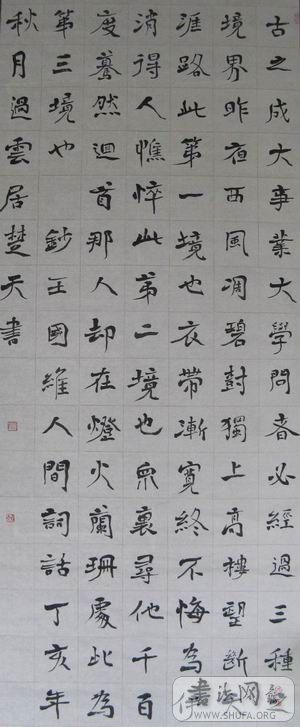 古之成大事業大學問者必經過三種
境界昨夜西風凋碧樹獨上高樓望斷
涯路此第一境也衣帶漸寬終不悔為
消得人憔悴此第二境也眾裏尋他千百
度驀然迴首那人却在燈火蘭珊處此為
第三境也鈔王國維人間詞話丁亥年
秋月過雲居楚天書
WWW.SHUFA.COM